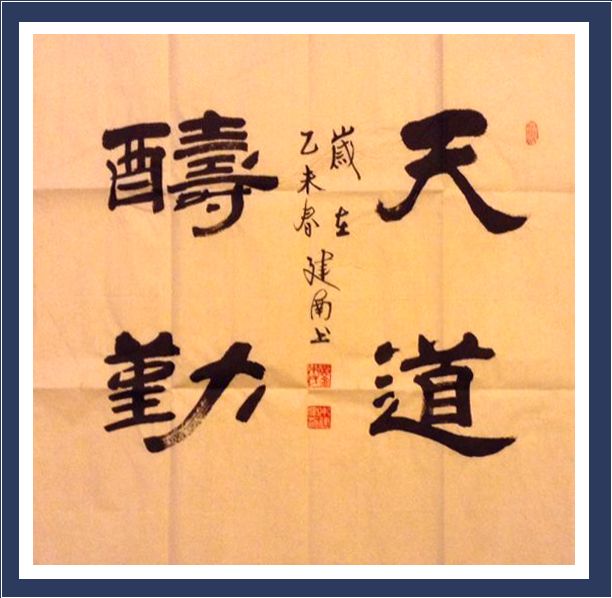 天道
歲在
乙未春建南上
醻勤